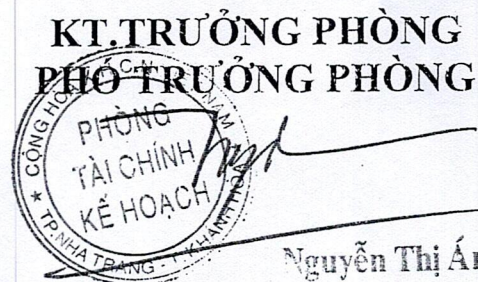 KT.TRƯỞNG PHÒNG
PHÓ TRƯỞNG PHÒNG
CỘNG HÒA
C.N
NAM
PHÒNG
TÀI CHÍNH
KẾ HOẠCH
★ TP.NHA TRANG - T.KHÁNH HÒA
Nguyễn Thị Án